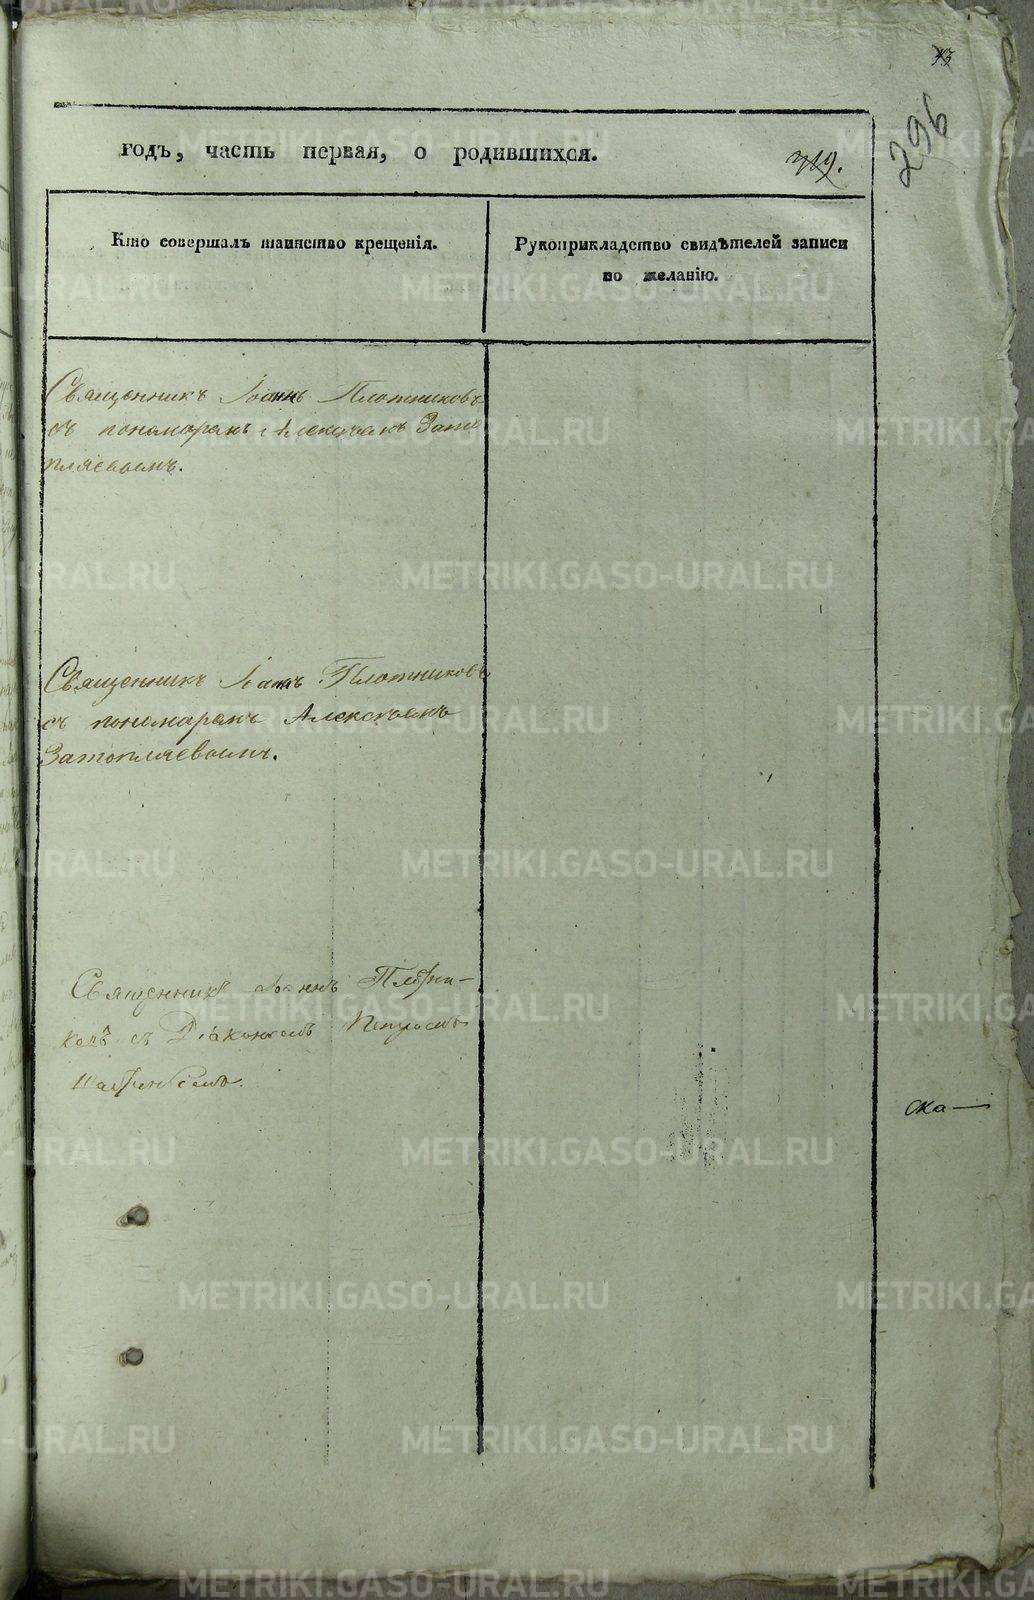 296
319.
годъ, часть первая, о родившихся.
Кто совершалъ таинство крещенія.
Рукоприкладство свидѣтелей записи
по желанію.
Священникъ Іоаннъ Плотниковъ
съ пономаремъ Алексѣемъ Зато
пляевымъ.
Священникъ Іоаннъ Плотниковъ
съ пономаремъ Алексѣемъ
Затопляевымъ.
Священникъ Іоаннъ Плотни-
ковъ съ Діакономъ Петромъ
ска-
METRIKI.GASO-URAL.RU